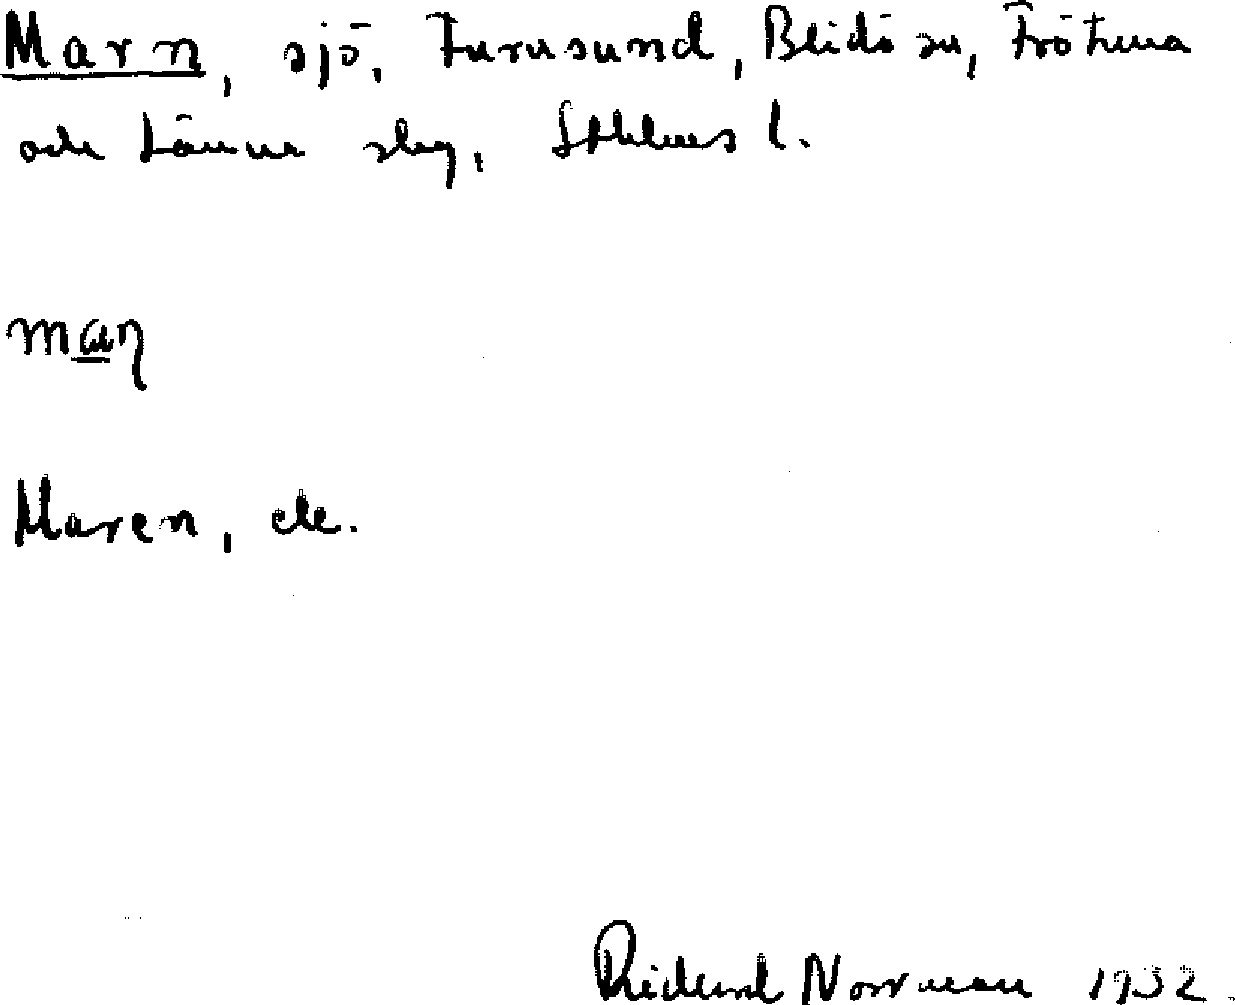 Marn, sjö, Furusund, Blidö sn, Frötuna
och Länna skg, Sthlms l.
maṉ
Maren, ek.
Rickard Norrman 1932.